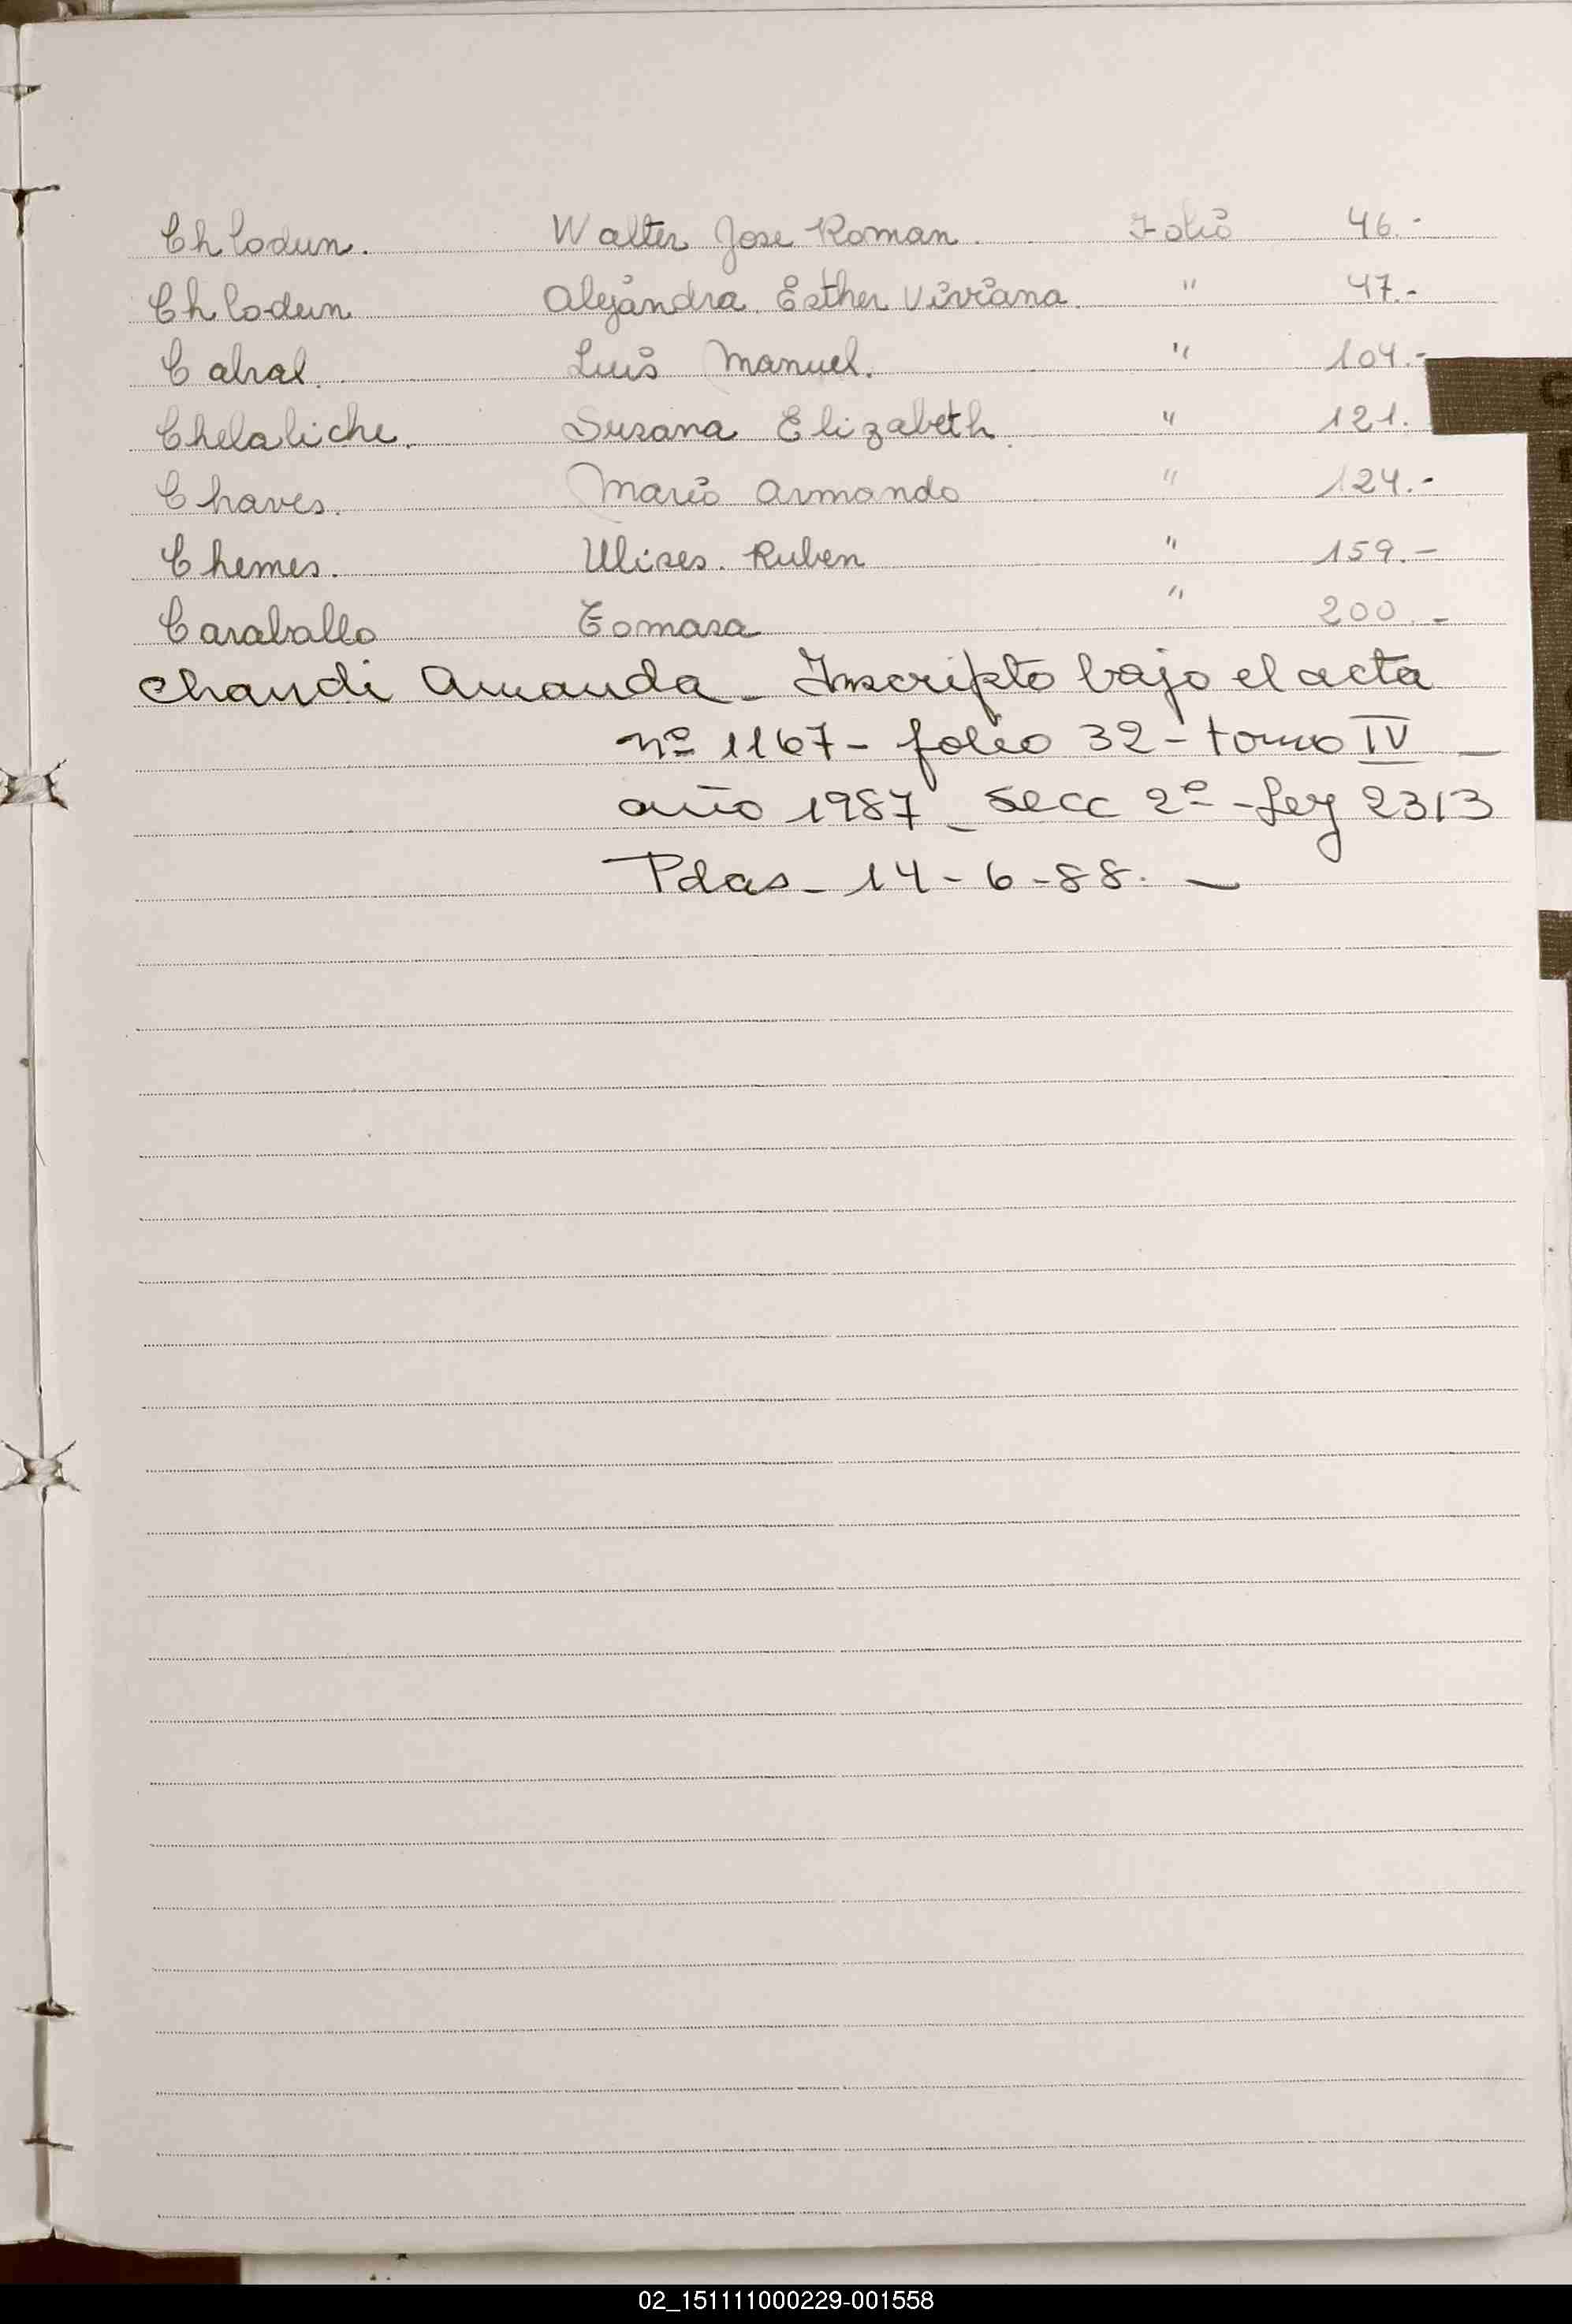 Chlodun. Walter Jose Roman. Folio 46.-
Chlodun Alejandra Esther Viviana. " 47.-
Cabral. Luis Manuel. " 104.-
Chelaliche. Susana Elizabeth. " 121.
Chaves. Mario Armando " 124.-
Chemes. Ulises. Ruben " 159.-
Caraballo Tomasa " 200.-
Chaudi Amanda - Inscripto bajo el acta
nº 1167 - folio 32 - tomo IV -
año 1987 - secc 2º - Ley 2313
Pdas - 14 - 6 - 88. -
02_151111000229-001558